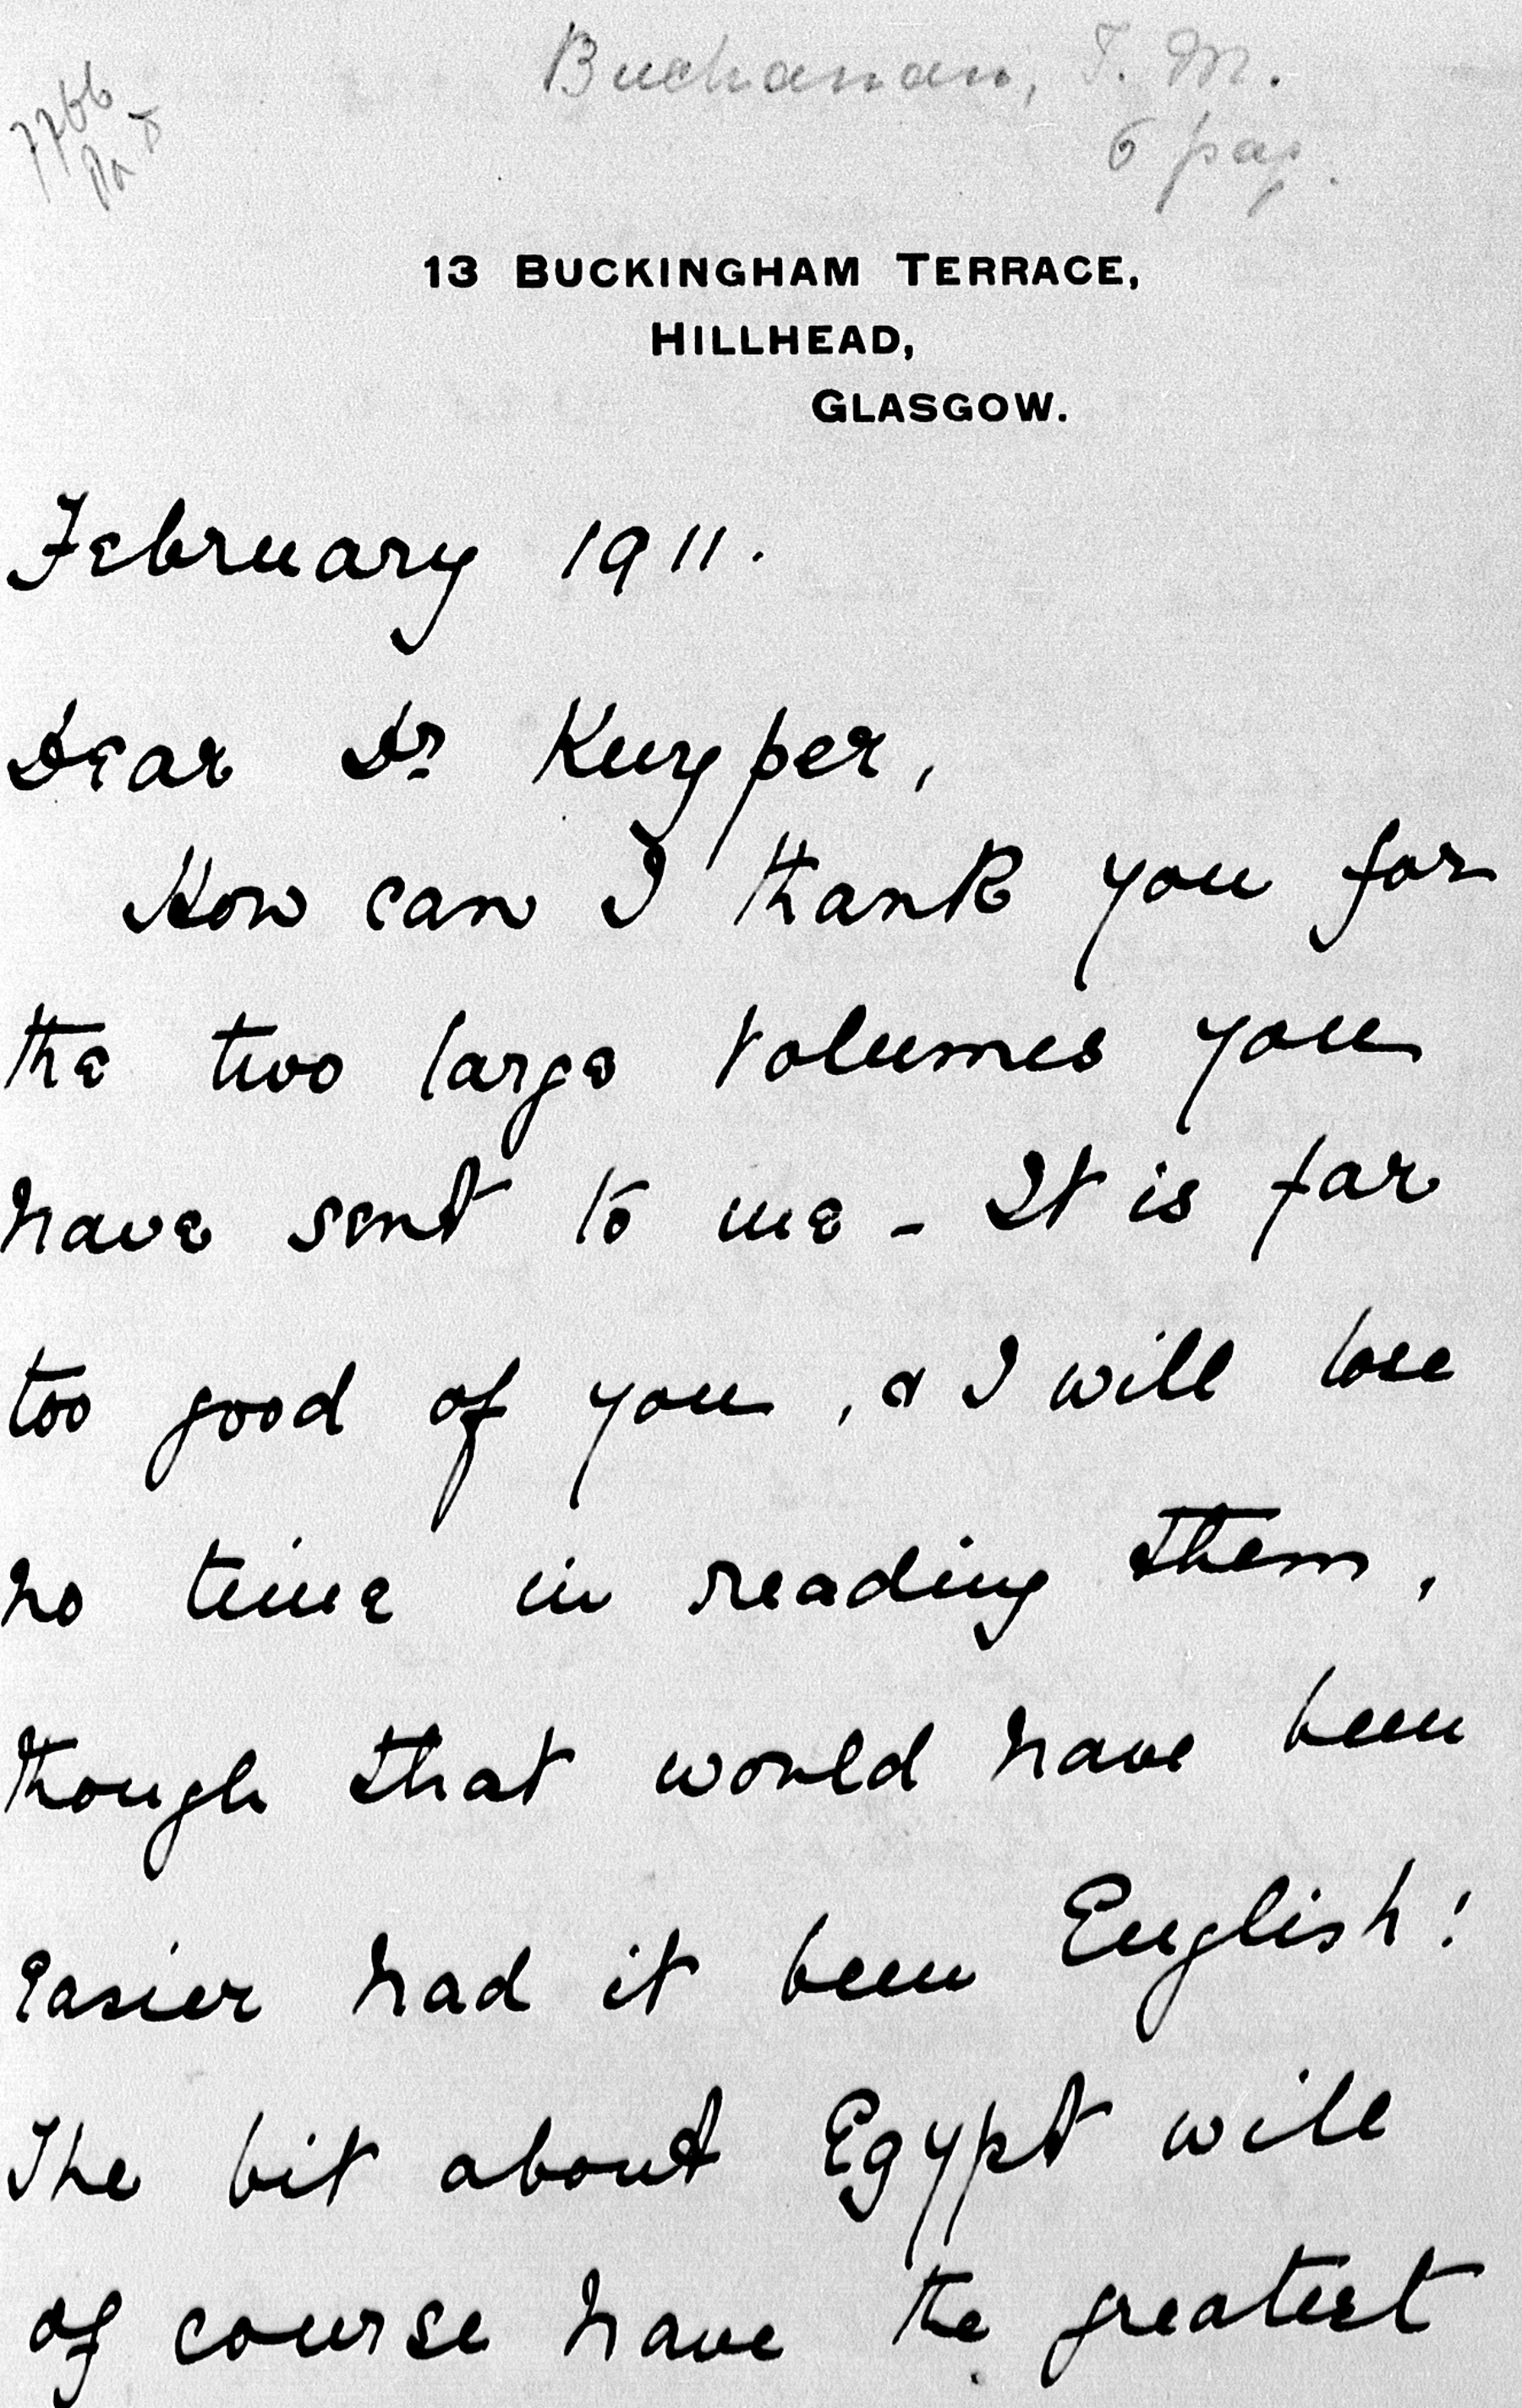 Buchanan, T. M.
6 pag.
7766
13 BUCKINGHAM TERRACE,
HILLHEAD,
GLASGOW.
February 1911.
Dear Dr Kuyper,
How can I thank you for
the two large volumes you
have sent to me - It is far
too good of you, & I will lose
no time in reading them,
though that would have been
easier had it been English!
The bit about Egypt will
of course have the greatest